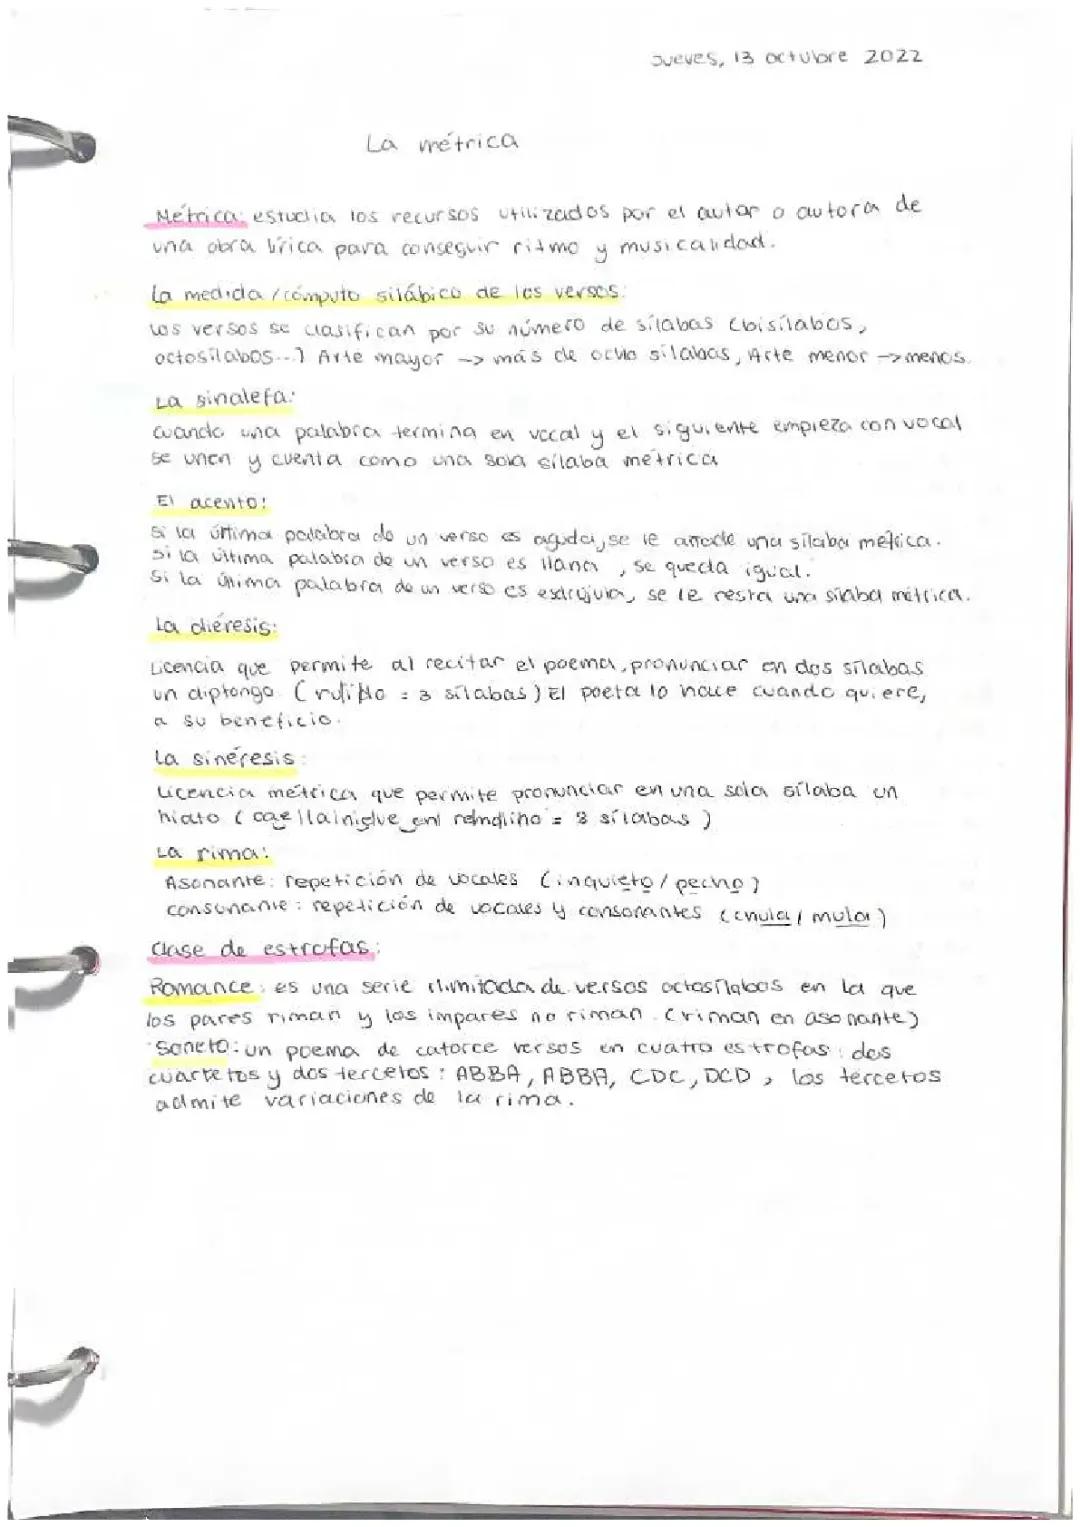 Jueves, 13 octubre 2022
La métrica
Métrica: estudia los recursos utilizados por el autor o autora de
una obra lírica para conseguir ritmo y musicalidad.
La medida / cómputo silábico de los versos:
Los versos se clasifican por su número de sílabas (bisílabos,
octosílabos...) Arte mayor -> más de ocho sílabas, Arte menor -> menos.
La sinalefa:
Cuando una palabra termina en vocal y el siguiente empieza con vocal
se unen y cuenta como una sola sílaba métrica
El acento:
Si la última palabra de un verso es aguda, se le añade una sílaba métrica.
Si la última palabra de un verso es llana, se queda igual.
Si la última palabra de un verso es esdrújula, se le resta una sílaba métrica.
La diéresis:
Licencia que permite al recitar el poema, pronunciar en dos sílabas
un diptongo ( = 3 sílabas) El poeta lo hace cuando quiere,
a su beneficio.
La sinéresis:
Licencia métrica que permite pronunciar en una sola sílaba un
hiato ( = 8 sílabas )
La rima:
Asonante: repetición de vocales (inquieto / pecho)
consonante: repetición de vocales y consonantes ( / mula)
Clase de estrofas:
Romance: es una serie ilimitada de versos octosílabos en la que
los pares riman y los impares no riman. (riman en asonante)
Soneto: un poema de catorce versos en cuatro estrofas: dos
cuartetos y dos tercetos: ABBA, ABBA, CDC, DCD, los tercetos
admite variaciones de la rima.